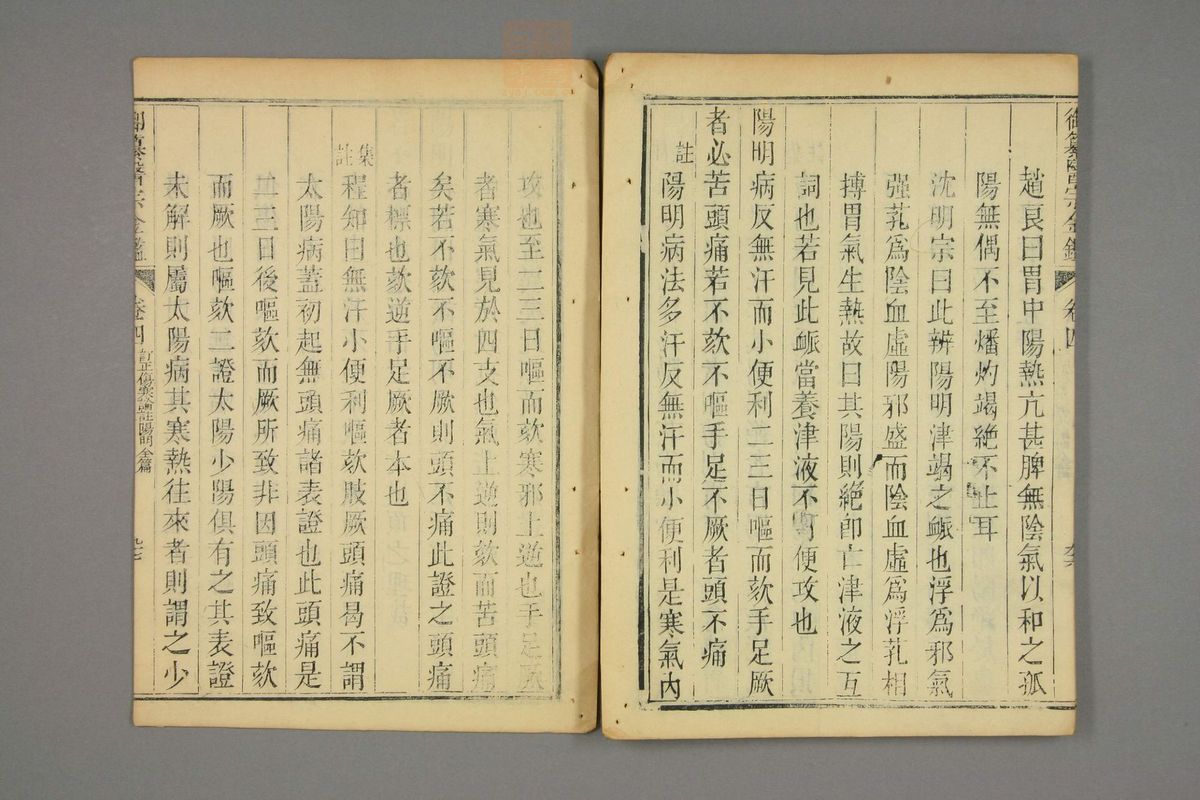 御纂醫宗金鑑 卷四
趙良曰胃中陽熱亢甚脾無陰氣以和之孤
陽無偶不至燔灼竭絕不止耳
沈明宗曰此辨陽明津竭之脈也浮爲邪氣
强芤爲陰血虛陽邪盛而陰血虛爲浮芤相
搏胃氣生熱故曰其陽則絕卽亡津液之互
詞也若見此脈當養津液不可便攻也
陽明病反無汗而小便利二三日嘔而欬手足厥
者必苦頭痛若不欬不嘔手足不厥者頭不痛
註 陽明病法多汗反無汗而小便利是寒氣內
攻也至二三日嘔而欬寒邪上逆也手足厥
者寒氣見於四支也氣上逆則欬而苦頭痛
矣若不欬不嘔不厥則頭不痛此證之頭痛
者標也欬逆手足厥者本也
集註 程知曰無汗小便利嘔欬肢厥頭痛曷不謂
太陽病蓋初起無頭痛諸表證也此頭痛是
二三日後嘔欬而厥所致非因頭痛致嘔欬
而厥也嘔欬二證太陽少陽俱有之其表證
未解則屬太陽病其寒熱往來者則謂之少
御纂醫宗金鑑 卷四 訂正傷寒論註陽明全篇